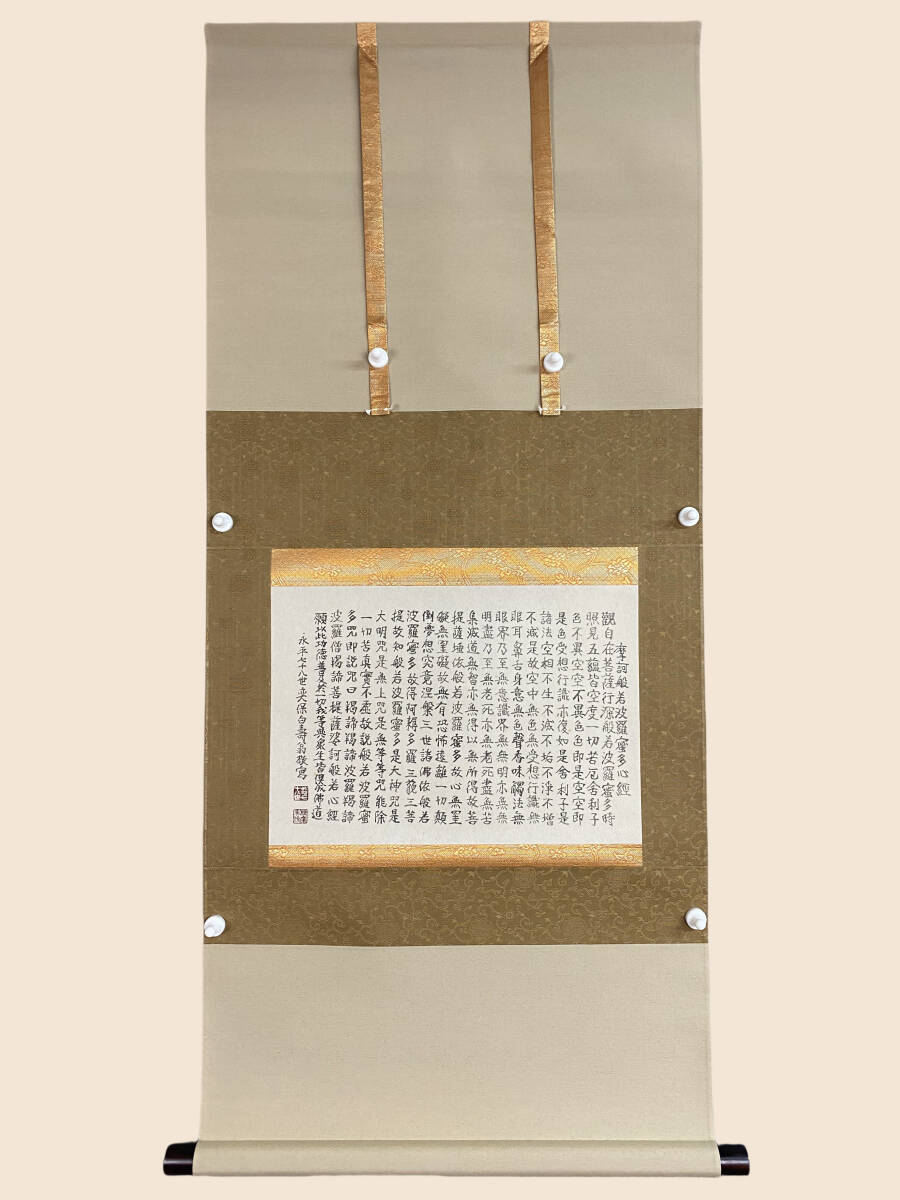 摩訶般若波羅蜜多心經
觀自在菩薩行深般若波羅蜜多時
照見五蘊皆空度一切苦厄舍利子
色不異空空不異色色即是空空即
是色受想行識亦復如是舍利子是
諸法空相不生不滅不垢不淨不增
不減是故空中無色無受想行識無
眼耳鼻舌身意無色聲香味觸法無
眼界乃至無意識界無無明亦無無
明盡乃至無老死亦無老死盡無苦
集滅道無智亦無得以無所得故菩
提薩埵依般若波羅蜜多故心無罣
礙無罣礙故無有恐怖遠離一切顛
倒夢想究竟涅槃三世諸佛依般若
波羅蜜多故得阿耨多羅三藐三菩
提故知般若波羅蜜多是大神咒是
大明咒是無上咒是無等等咒能除
一切苦真實不虛故說般若波羅蜜
多咒即說咒曰揭諦揭諦波羅揭諦
波羅僧揭諦菩提薩婆訶般若心經
願以此功德普及於一切我等與衆生皆倶成佛道
永平七十八世奕保白壽翁敬寫